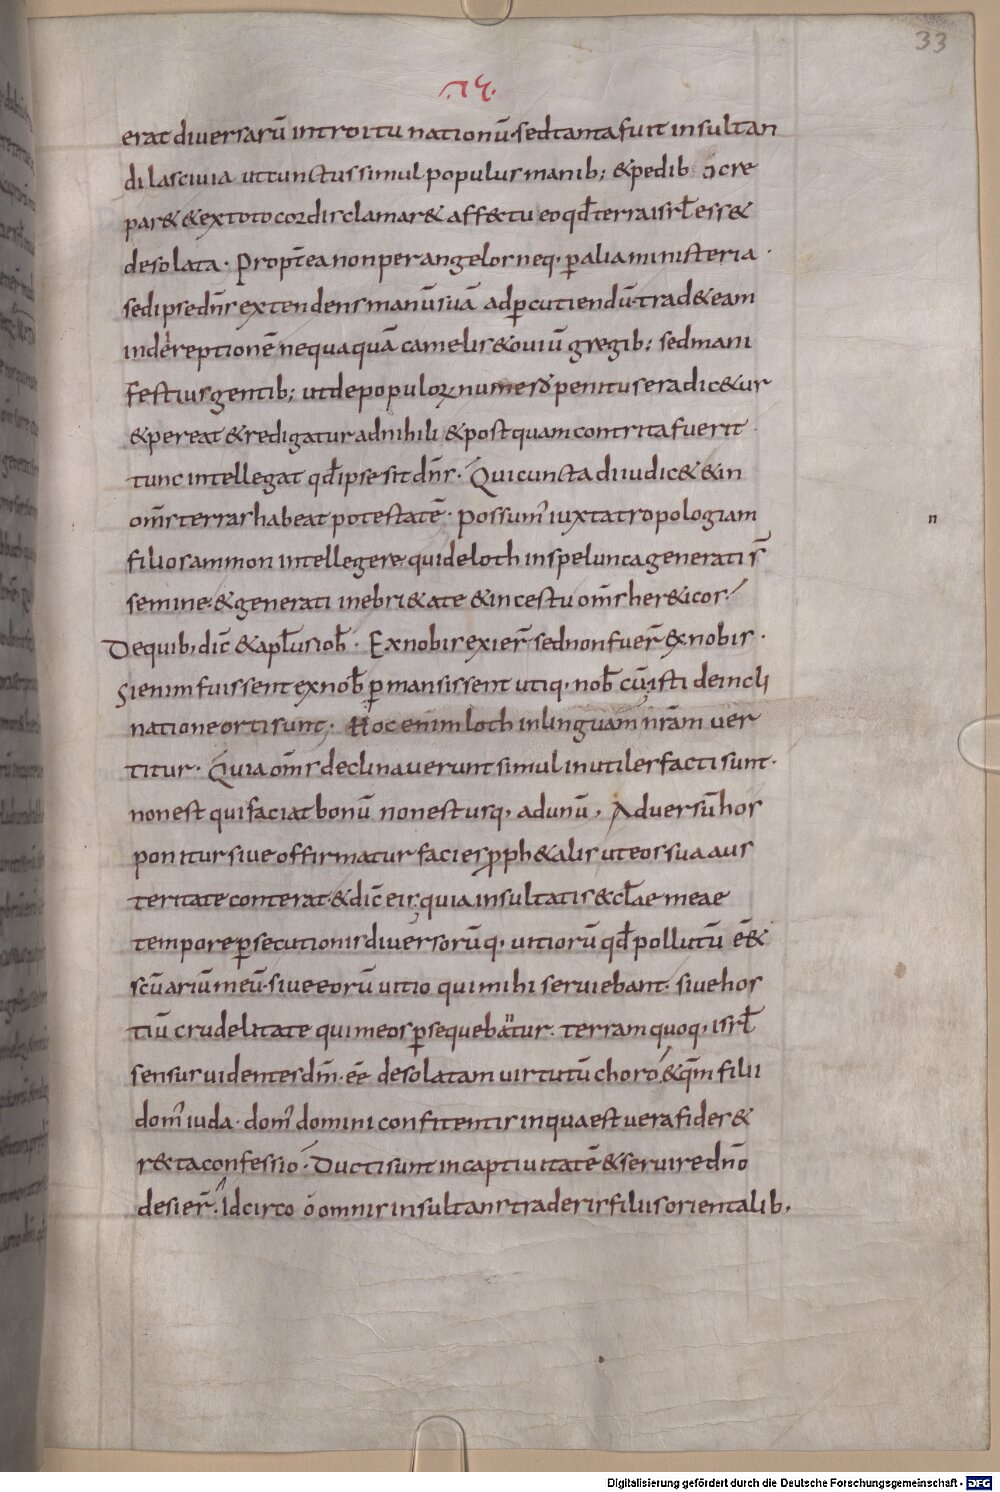 33
erat diuersarū introitu nationū· sed tanta fuit insultan
di lasciuia ut iunctus simul populus manib; & pedib concre
par& & ex toto cordis clamar& aff&tu eo qđ terra isrł ess&
desolata· Propt̄ea non per angelos neq· p̱ alia ministeria·
sed ipse dn̄s extendens manū suā ad p̱cutiendū· trad& eam
in dereptionē nequaquā camelis & ouiū gregib; sed mani
festius gentib; ut de populoꝝ numero penitus eradic&ur
& pereat & redigatur ad nihili & postquam contrita fuerit·
tunc intellegat qđ ipse sit dn̄s· Qui cuncta diiudic& & in
om̄s terras habeat potestatē· possum' iuxta tropologiam
filios ammon intellegere· qui de loth in spelunca generati s̄
semine· & generati in ebri&ate & incestu om̄s her&icos·
De quib, dic̄ & apłus ioħ· Ex nobis exier̄ sed non fuer̄ ex nobis·
Si enim fuissent ex nob̄ p̱mansissent utiq· nob̄cū isti de incli
natione orti sunt· Hoc enim loth in linguam nr̄am uer
titur· Quia om̄s declinauerunt simul inutiles facti sunt·
non est qui faciat bonū non est usq· ad unū· Aduersū hos
ponitur siue offirmatur facies p̱ph&alis ut eos sua aus
teritate conterat· & dic̄ eis· quia insultatis & cłae meae
tempore p̱secutionis diuersorūq· uitiorū qđ pollutū ē &
sc̄uariū meū· siue eorū uitio qui mihi seruiebant· siue hos
tiū crudelitate qui meos p̱sequebatur· terram quoq· isrł
sensus uidentes dm̄· eē desolatam uirtutū choro· & qm̄ filii
dom' iuda· dom' domini confitentis in qua est uera fides &
r&ta confessio· Ducti sunt in captiuitatē & seruire dn̄o
desier̄· Idcirco o omnis insultans traderis filiis orientalib,
Digitalisierung gefördert durch die Deutsche Forschungsgemeinschaft - DFG